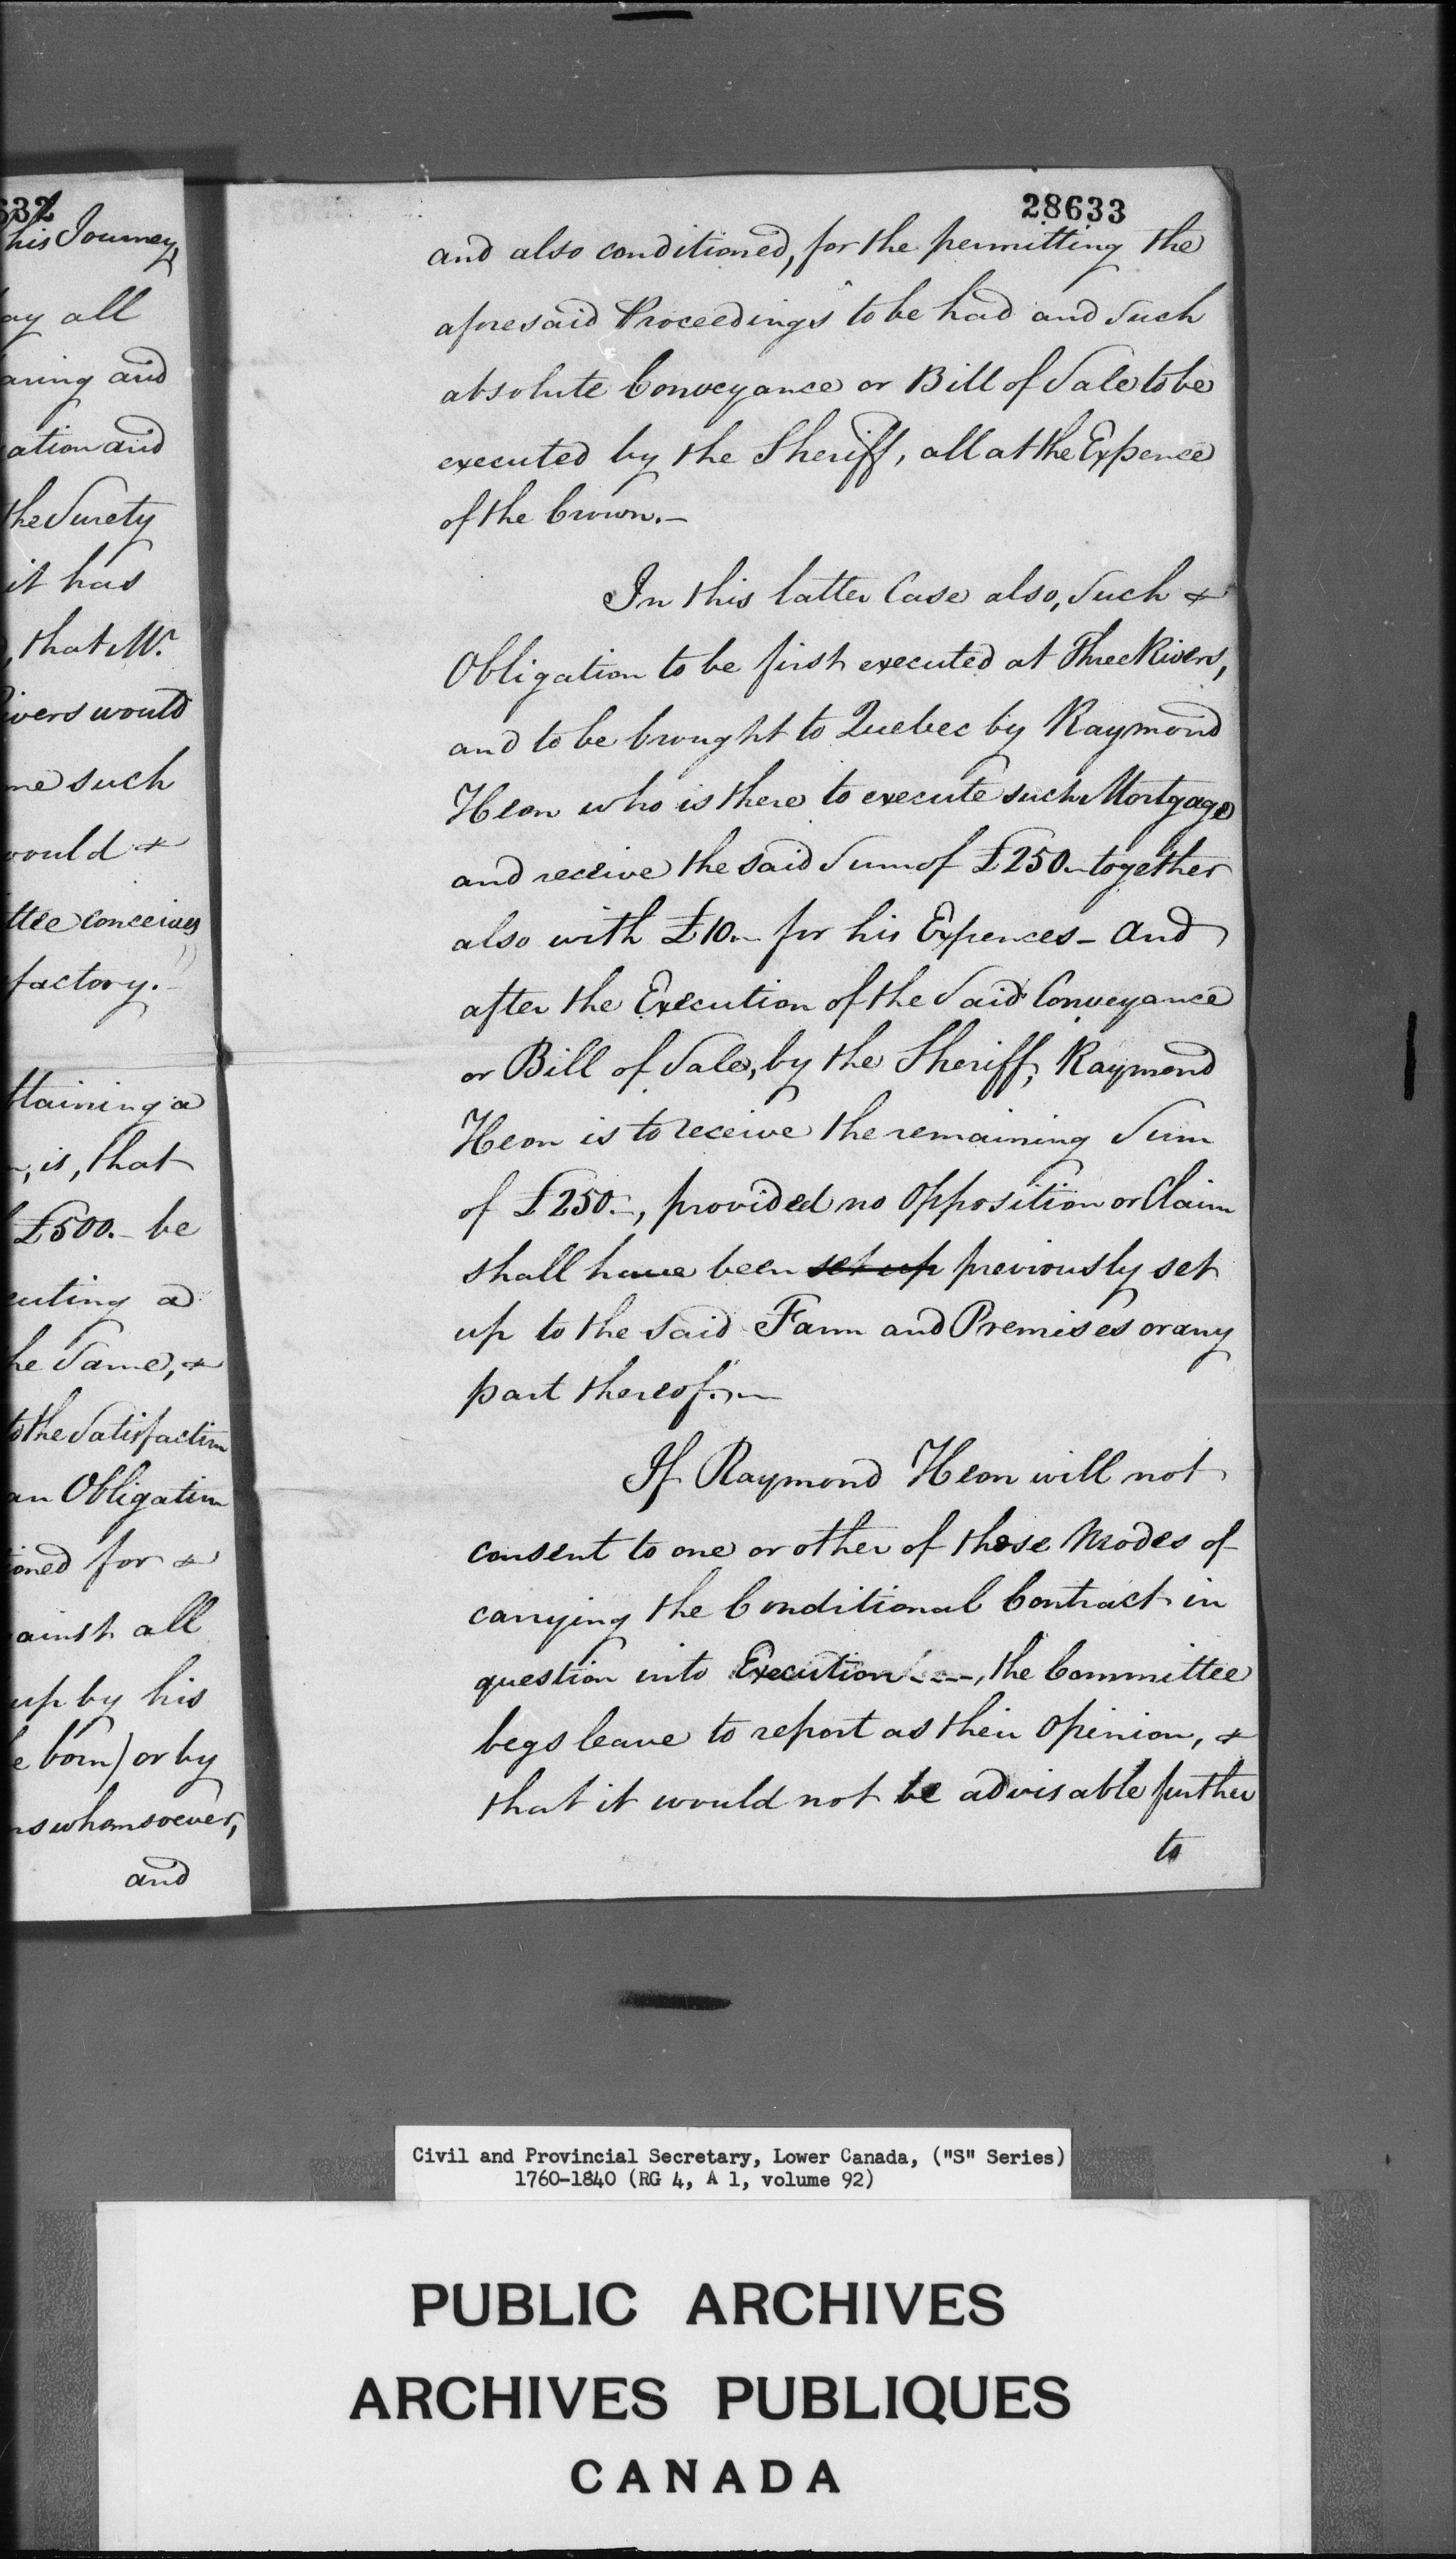 632
his Journey,
ay all
aring and
ation and
the Surety
it has
, that Mr.
ivers would
me such
would &
ttee conceives
factory.
ttaining a
, is, that
£500.- be
cuting a
he Same, &
to the Satisfaction
an Obligation
ioned for &
ainst all
up by his
e born) or by
ns whomsoever,
and
28633
and also conditioned, for the permitting the
aforesaid Proceedings to be had and Such
absolute Conveyance or Bill of Sale to be
executed by the Sheriff, all at the Expence
of the Crown.-
In this latter Case also, Such &
Obligation to be first executed at Three Rivers,
and to be brought to Quebec by Raymond
Heon who is there to execute such Mortgage
and receive the said Sum of £250.- together
also with £10.- for his Expences - and
after the Execution of the Said Conveyance
or Bill of Sale, by the Sheriff, Raymond
Heon is to receive the remaining Sum
of £250.-, provided no Opposition or Claim
shall have been set up previously set
up to the said Farm and Premises or any
part thereof.-
If Raymond Heon will not
consent to one or other of those Modes of
carrying the Conditional Contract in
question into Execution ---, the Committee
begs leave to report as their Opinion, &
that it would not be advisable further
to
Civil and Provincial Secretary, Lower Canada, ("S" Series)
1760-1840 (RG 4, A 1, volume 92)
PUBLIC ARCHIVES
ARCHIVES PUBLIQUES
CANADA